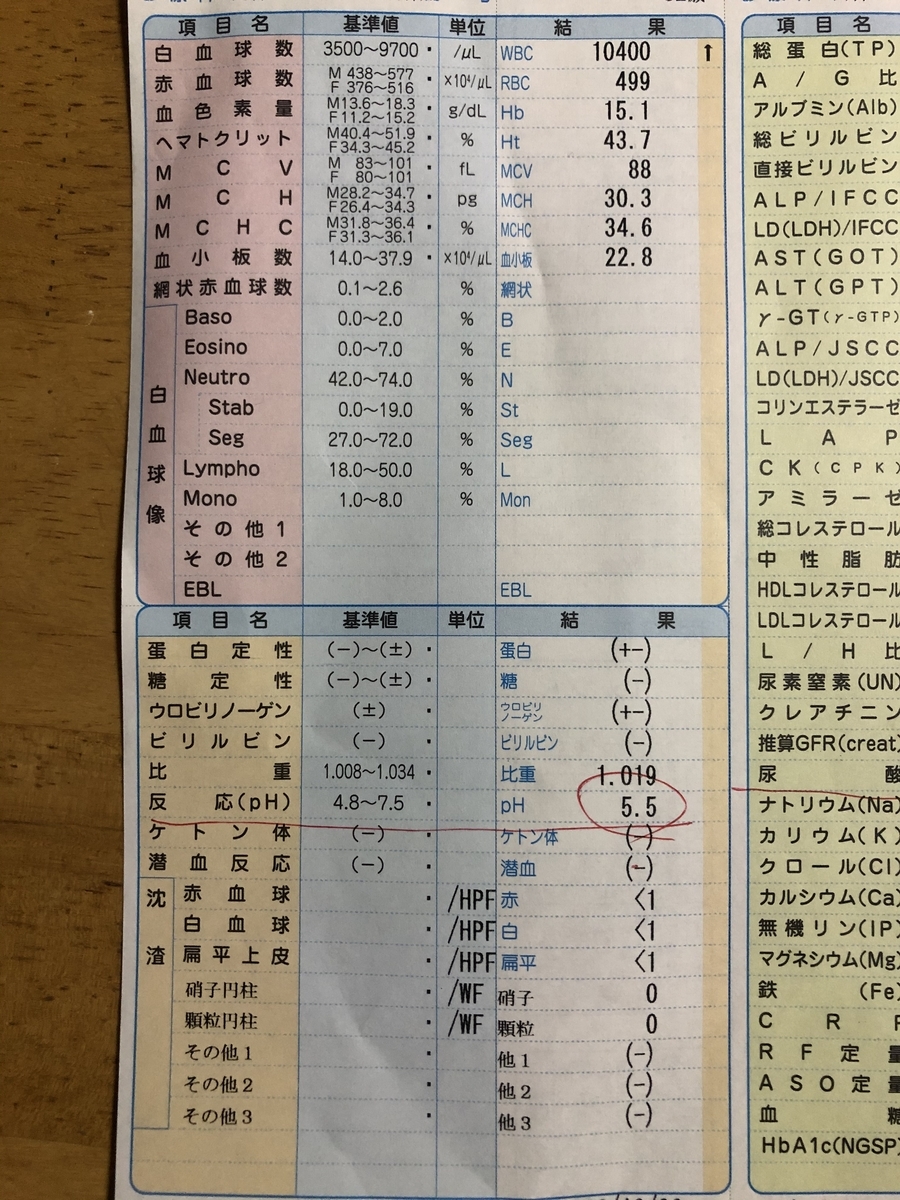 項目名 基準値 単位 結果
白血球数 3500～9700 /μL WBC 10400 ↑
赤血球数 M 438～577 F 376～516 ×10⁴/μL RBC 499
血色素量 M13.6～18.3 F11.2～15.2 g/dL Hb 15.1
ヘマトクリット M40.4～51.9 F34.3～45.2 % Ht 43.7
MCV M 83～101 F 80～101 fL MCV 88
MCH M28.2～34.7 F26.4～34.3 pg MCH 30.3
MCHC M31.8～36.4 F31.3～36.1 % MCHC 34.6
血小板数 14.0～37.9 ×10⁴/μL 血小板 22.8
網状赤血球数 0.1～2.6 % 網状
白血球像
Baso 0.0～2.0 % B
Eosino 0.0～7.0 % E
Neutro 42.0～74.0 % N
Stab 0.0～19.0 % St
Seg 27.0～72.0 % Seg
Lympho 18.0～50.0 % L
Mono 1.0～8.0 % Mon
その他1
その他2
EBL EBL
項目名 基準値 単位 結果
蛋白定性 (−)～(±) 蛋白 (+-)
糖定性 (−)～(±) 糖 (-)
ウロビリノーゲン (±) ウロビリノーゲン (+-)
ビリルビン (−) ビリルビン (-)
比重 1.008～1.034 比重 1.019
反応(pH) 4.8～7.5 pH 5.5
ケトン体 (−) ケトン体 (-)
潜血反応 (−) 潜血 (-)
沈渣
赤血球 /HPF 赤 <1
白血球 /HPF 白 <1
扁平上皮 /HPF 扁平 <1
硝子円柱 /WF 硝子 0
顆粒円柱 /WF 顆粒 0
その他1 他1 (-)
その他2 他2 (-)
その他3 他3 (-)
項目名
総蛋白(TP)
A/G比
アルブミン(Alb)
総ビリルビン
直接ビリルビン
ALP/IFCC
LD(LDH)/IFCC
AST(GOT)
ALT(GPT)
γ-GT(γ-GTP)
ALP/JSCC
LD(LDH)/JSCC
コリンエステラーゼ
LAP
CK(CPK)
アミラーゼ
総コレステロール
中性脂肪
HDLコレステロール
LDLコレステロール
L/H比
尿素窒素(UN)
クレアチニン
推算GFR(creat)
尿酸
ナトリウム(Na)
カリウム(K)
クロール(Cl)
カルシウム(Ca)
無機リン(IP)
マグネシウム(Mg)
鉄(Fe)
CRP
RF定量
ASO定量
血糖
HbA1c(NGSP)